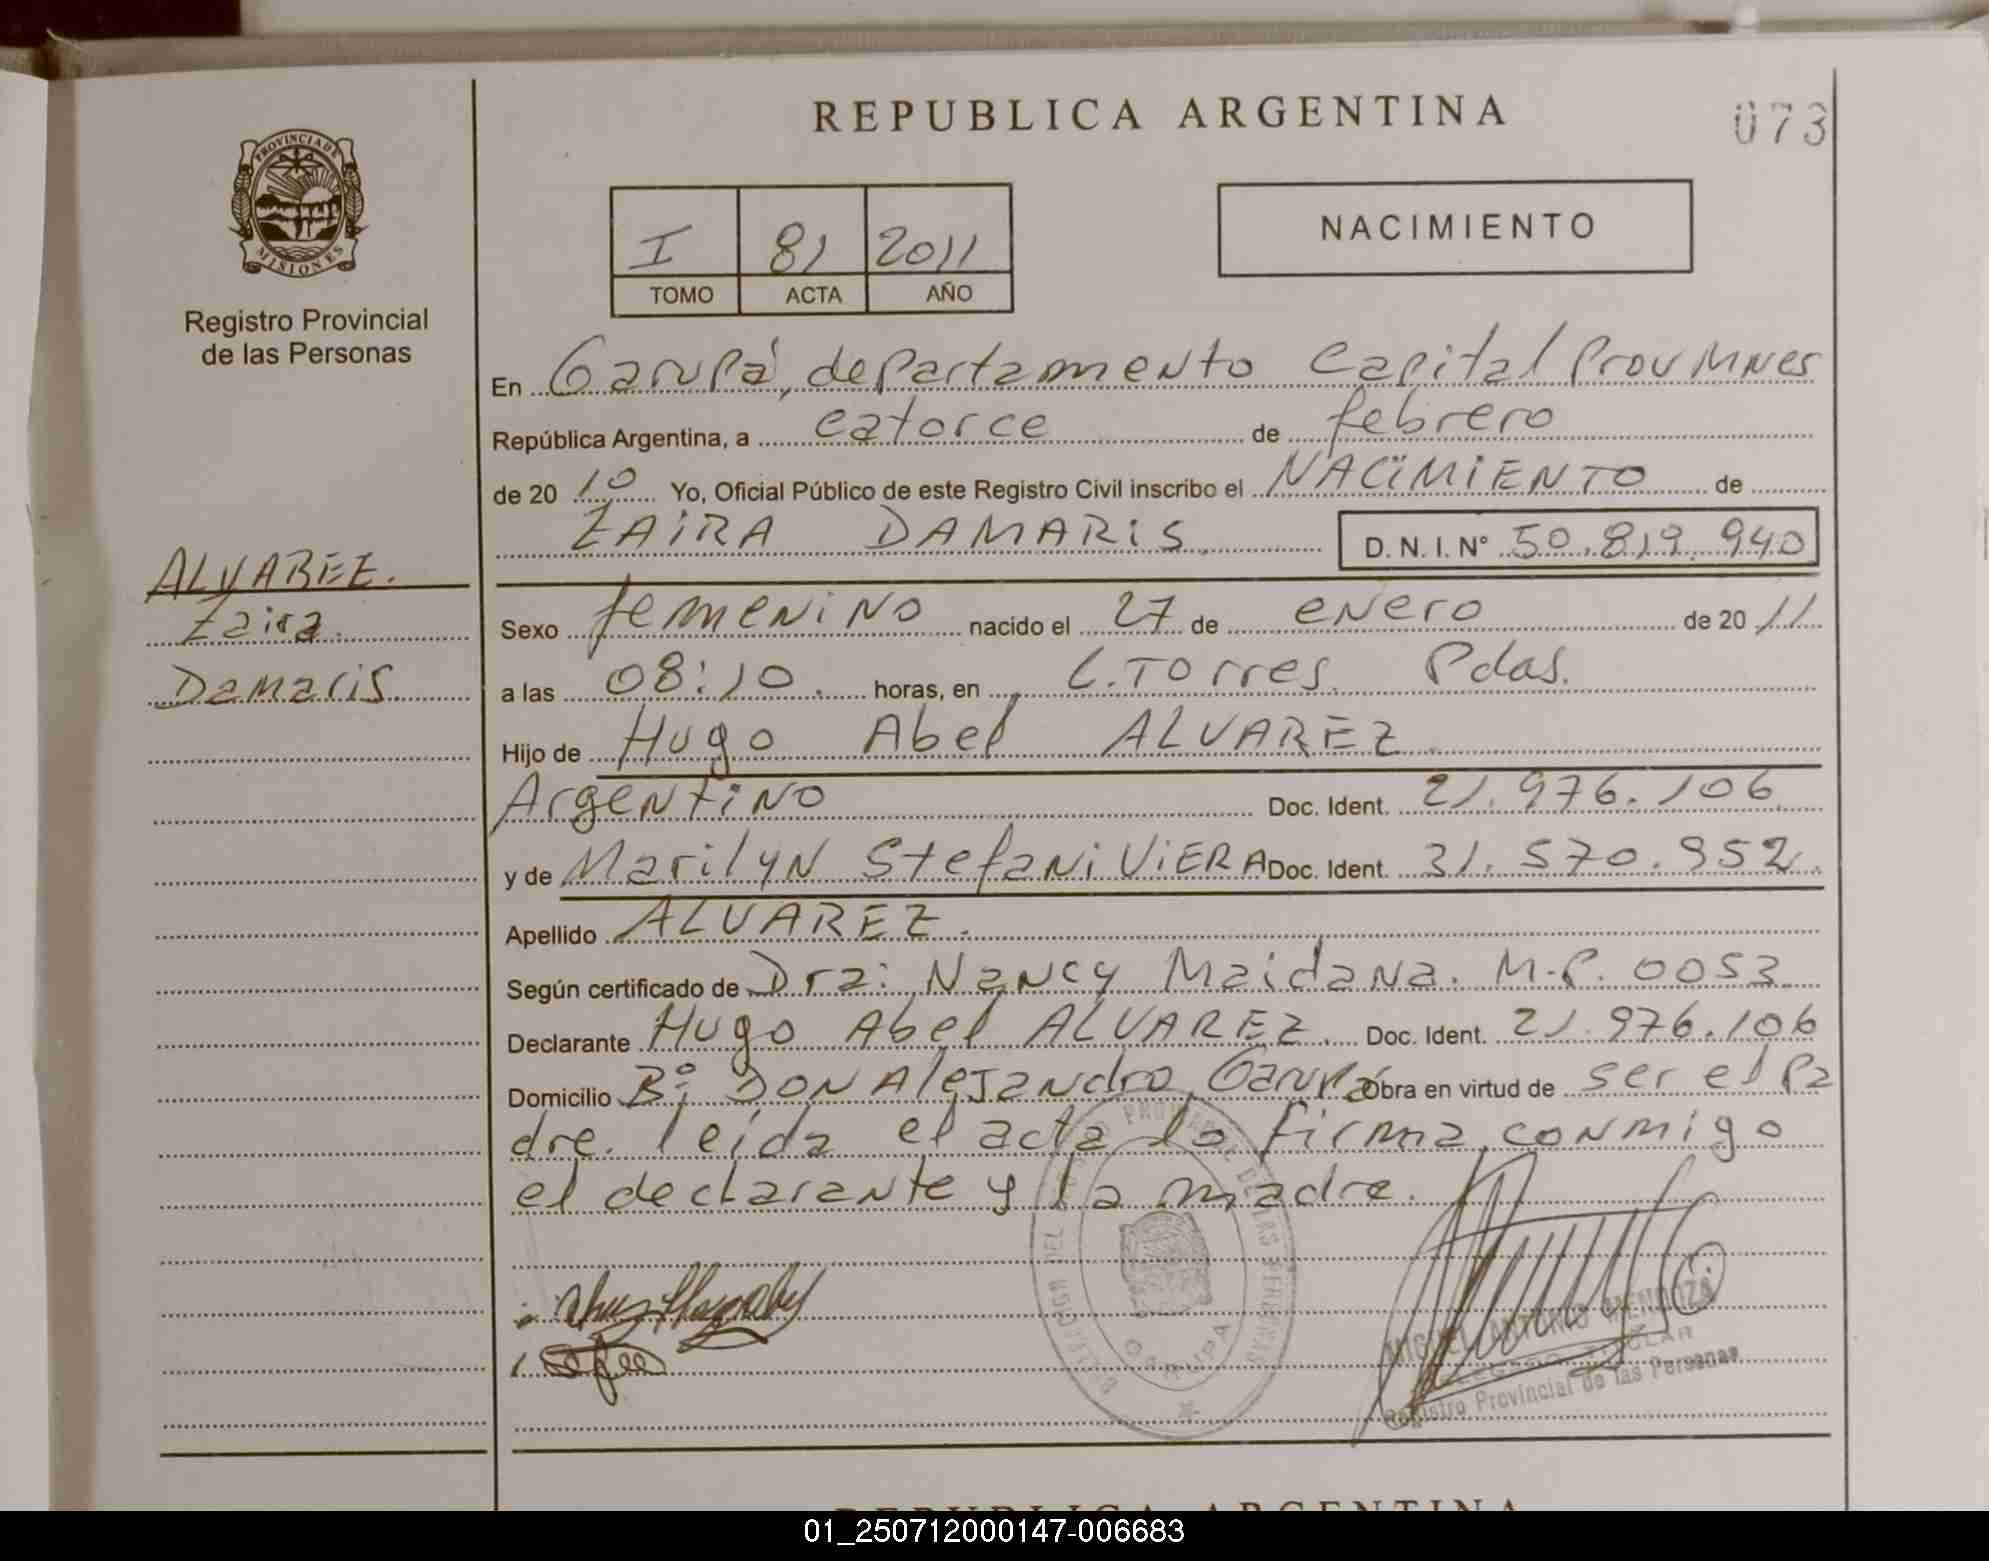 REPUBLICA ARGENTINA
073
PROVINCIA DE
MISIONES
Registro Provincial
de las Personas
I 81 2011
TOMO ACTA AÑO
NACIMIENTO
En Garupá, departamento Capital Prov Mnes
República Argentina, a catorce de febrero
de 20 10 Yo, Oficial Público de este Registro Civil inscribo el NACIMIENTO de
ZAIRA DAMARIS D. N. I. N° 50.819.940
ALVAREZ.
Zaira
Damaris
Sexo femenino nacido el 27 de enero de 20 11
a las 08:10. horas, en L. Torres. Pdas.
Hijo de Hugo Abel ALVAREZ
Argentino Doc. Ident. 21.976.106
y de Marilyn Stefani VIERA Doc. Ident. 31.570.952.
Apellido ALVAREZ.
Según certificado de Dra: Nancy Maidana. M.P. 0053
Declarante Hugo Abel ALVAREZ. Doc. Ident. 21.976.106
Domicilio Bº; DON Alejandro, Garupá Obra en virtud de ser el Pa
dre. leida el acta la firma conmigo
el declarante y la madre.
DELEGACION DEL REGISTRO PROVINCIAL DE LAS PERSONAS
GARUPA
MIGUEL ANTONIO MENDOZA
DELEGADO TITULAR
Registro Provincial de las Personas
REPUBLICA ARGENTINA
01_250712000147-006683